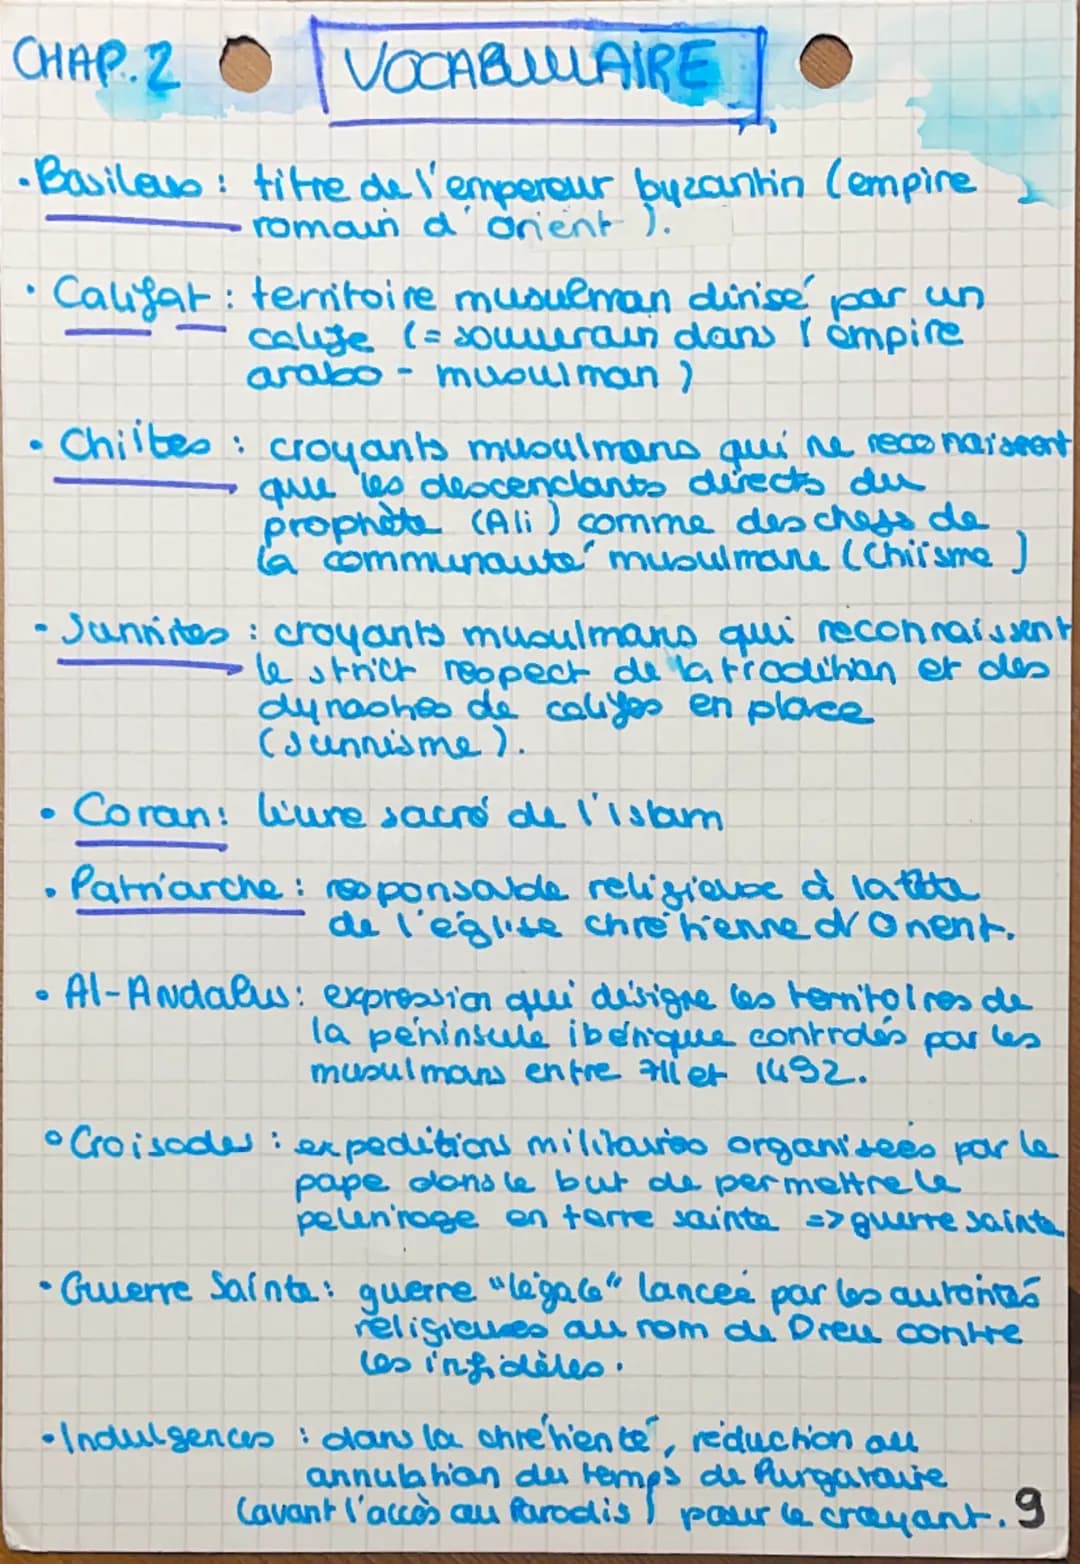 CHAP.2 VOCABULAIRE
• Basileus : titre de l'empereur byzantin (empire
romain d'orient).
• Califat : territoire musulman dirisé par un
calife (= souverain dans l'empire
arabo-musulman)
• Chiites : croyants musulmans qui ne reconaissent
que les descendants directs du
prophète (Ali) comme des chefs de
la communauté musulmane (Chiisme)
• Sunnites : croyants musulmans qui reconnaissent
le strict respect de la tradition et des
dynasties de califes en place
(Sunnisme).
• Coran : livre sacré de l'islam
• Patriarche : responsable religieux à la tête
de l'église chrétienne d'Orient.
• Al-Andalus : expression qui désigne les territoires de
la péninsule ibérique contrôlés par les
musulmans entre 711 et 1492.
• Croisades : expéditions militaires organisées par le
pape dans le but de permettre le
pelerirage en terre sainte => guerre sainte
• Guerre Sainte : guerre "légale" lancée par les autorités
religieuses au nom de Dieu contre
les infidèles.
• Indulgences : dans la chrétienté, réduction ou
annulation du temps de Purgatoire
(avant l'accès au Paradis) pour le croyant. 9